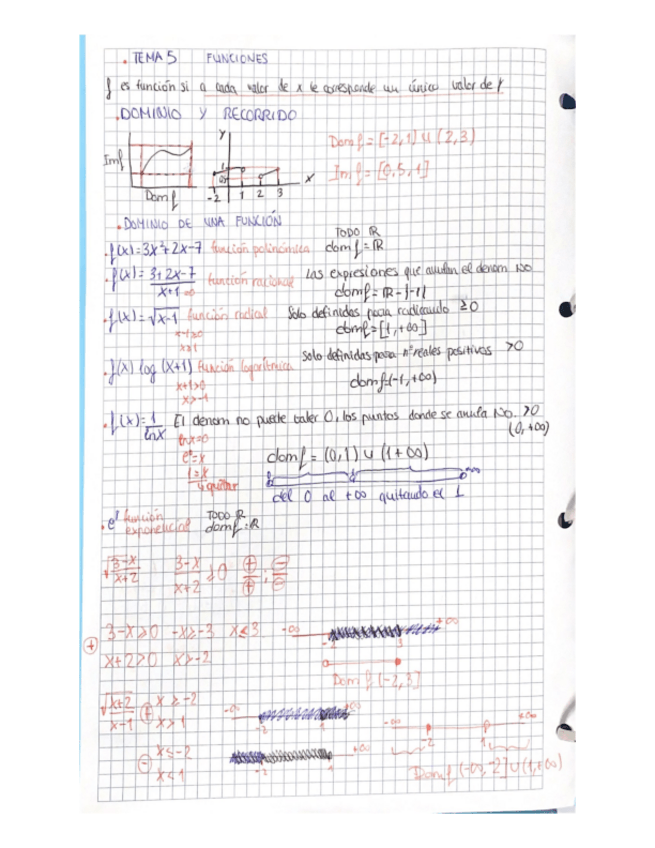 . TEMA 5 FUNCIONES
f es función si a cada valor de x le corresponde un único valor de y
.DOMINIO Y RECORRIDO
Imf
Domf
y
x
-2 1 2 3
Dom f = [-2,1] U (2,3)
Im f = [0,5,1]
. DOMINIO DE UNA FUNCIÓN
.f(x)=3x²+2x-7 función polinómica TODO ℝ dom f = ℝ
.f(x)= 3+2x-7 / x+1 =0 función racional Las expresiones que anulan el denom NO
dom f = ℝ - {-1}
.f(x)= √x-1 función radial Solo definidas para radicando ≥0
x-1≥0
x≥1
dom f = [1,+∞]
.f(x) log (x+1) función logarítmica Solo definidas para nº reales positivos >0
x+1>0
x>-1
dom f=(-1,+∞)
.f(x)= 1 / lnx El denom no puede valer 0, los puntos donde se anula NO. >0
(0,+∞)
lnx=0
e⁰=x
1=x
quitar
dom f = (0,1) U (1+∞)
del 0 al +∞ quitando el 1
. función exponencial TODO ℝ dom f = ℝ
√3-x / x+2 3-x / x+2 ≥0 + / + ; - / -
+ 3-x≥0 -x≥-3 x≤3 -∞ +∞
x+2>0 x>-2
Dom f (-2,3]
√x+2 / x-1 + x≥-2
x>1
-∞ -2 1 +∞
- x≤-2
x<1
-2 1 +∞
-∞ -2 1 +∞
Dom f (-∞,-2] U (1,+∞)